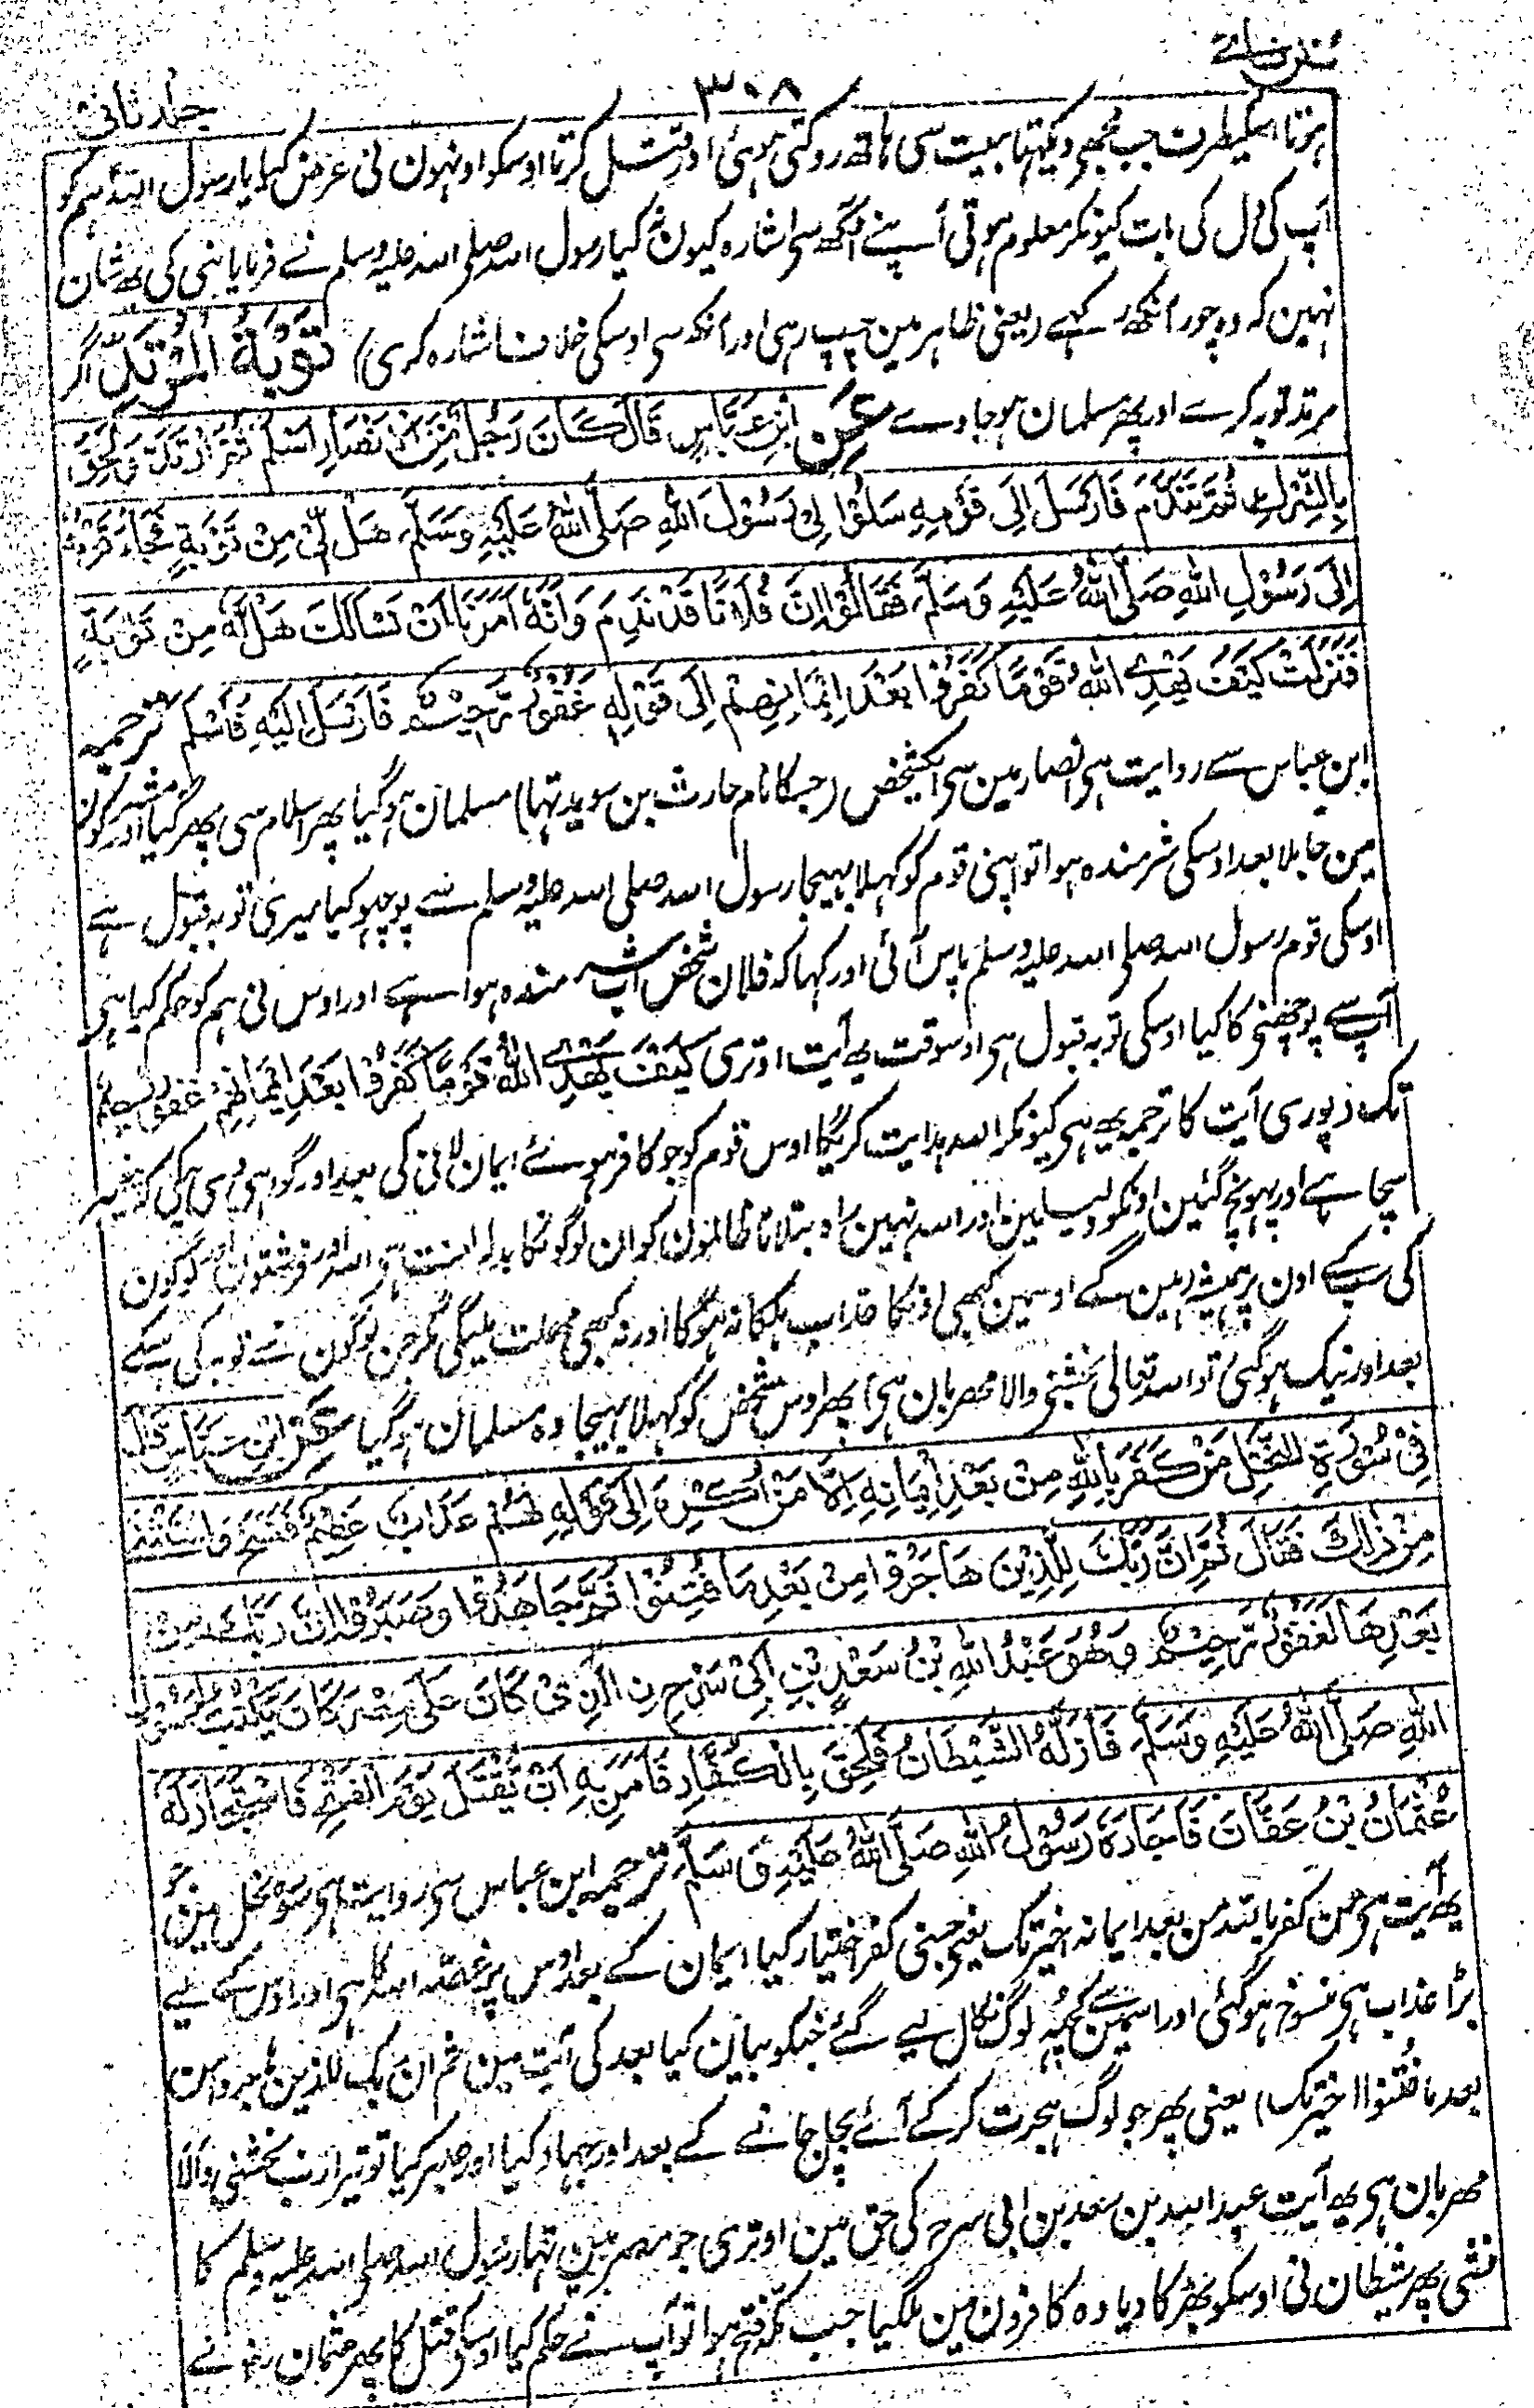 سنن نسائے
۳۰۸
جلد ثانی
ہوتا اسکیطرف جب مجھے دیکھتا بیعت سی ہاتھ روکتی ہوئی اور قتل کرتا اوسکو اونہون نی عرض کیا یا رسول اللہ ہم کو
آپ کی دل کی بات کیونکر معلوم ہوتی آپ نے آنکھ سی اشارہ کیون نہ کیا رسول اللہ صلی اللہ علیہ وسلم نے فرمایا نبی کی یہ شان
نہین کہ وہ چور آنکھ رکھے (یعنی ظاہر مین چپ رہی اور آنکھ سی اوسکی خلاف اشارہ کری) تَوْبَةُ الْمُرْتَدِّ اگر
مرتد توبہ کرے اور پھر مسلمان ہو جاوے عَنِ ابْنِ عَبَّاسٍ قَالَ كَانَ رَجُلٌ مِّنَ الْاَنْصَارِ اَسْلَمَ ثُمَّ ارْتَدَّ وَلَحِقَ
بِالشِّرْكِ ثُمَّ تَنَدَّمَ فَاَرْسَلَ اِلٰى قَوْمِهٖ سَلُوْا لِيْ رَسُوْلَ اللهِ صَلَّى اللهُ عَلَيْهِ وَسَلَّمَ هَلْ لِّيْ مِنْ تَوْبَةٍ فَجَاءَ قَوْمُهٗ
اِلٰى رَسُوْلِ اللهِ صَلَّى اللهُ عَلَيْهِ وَسَلَّمَ فَقَالُوْا اِنَّ فُلَانًا قَدْ نَدِمَ وَاِنَّهٗ اَمَرَنَا اَنْ نَسْاَلَكَ هَلْ لَهٗ مِنْ تَوْبَةٍ
فَنَزَلَتْ كَيْفَ يَهْدِي اللهُ قَوْمًا كَفَرُوْا بَعْدَ اِيْمَانِهِمْ اِلٰى قَوْلِهٖ غَفُوْرٌ رَّحِيْمٌ فَاَرْسَلَ اِلَيْهِ فَاَسْلَمَ ترجمہ
ابن عباس سے روایت ہی انصار مین سی ایک شخص (جسکا نام حارث بن سوید تہا) مسلمان ہو گیا پھر اسلام سی پھر گیا اور مشرکون
مین جا ملا بعد اوسکی شرمندہ ہوا تو اپنی قوم کو کہلا بہیجا رسول اللہ صلی اللہ علیہ وسلم سے پوچہو کیا میری توبہ قبول ہے
اوسکی قوم رسول اللہ صلی اللہ علیہ وسلم پاس آئی اور کہا کہ فلان شخص آپ شرمندہ ہوا ہے اور اوس نی ہم کو حکم کیا ہی
آپ سے پوچھنی کا کیا اوسکی توبہ قبول ہی اوسوقت یہ آیت اوتری كَيْفَ يَهْدِي اللهُ قَوْمًا كَفَرُوْا بَعْدَ اِيْمَانِهِمْ غفور رحیم
تک (پوری آیت کا ترجمہ یہ ہی کیونکر اللہ ہدایت کریگا اوس قوم کو جو کافر ہوئے ایمان لانی کی بعد اور گواہی دی ہیکی کہ پیغمبر
سچا ہے اور پہونچ گئین اونکو دلیلین اور اللہ نہین راہ بتلاتا ظالمون کو ان لوگونکا بدلہ لعنت ہے اللہ اور فرشتون اور لوگون
کی سب کے اون پر ہمیشہ رہین گے اوسمین کبھی اونکا عذاب ہلکا نہ ہوگا اور نہ کبھی مہلت ملیگی مگر جن لوگون نے توبہ کی سکے
بعد اور نیک ہو گئی تو اللہ تعالی بخشنی والا مہربان ہی) پھر اوس شخص کو کہلا بہیجا وہ مسلمان ہو گیا عَنِ ابْنِ عَبَّاسٍ قَالَ
فِيْ سُوْرَةِ النَّحْلِ مَنْ كَفَرَ بِاللهِ مِنْ بَعْدِ اِيْمَانِهٖ اِلَّا مَنْ اُكْرِهَ اِلٰى قَوْلِهٖ لَهُمْ عَذَابٌ عَظِيْمٌ فَنُسِخَ وَاسْتَثْنٰى
مِنْ ذٰلِكَ فَقَالَ ثُمَّ اِنَّ رَبَّكَ لِلَّذِيْنَ هَاجَرُوْا مِنْ بَعْدِ مَا فُتِنُوْا ثُمَّ جَاهَدُوْا وَصَبَرُوْا اِنَّ رَبَّكَ مِنْ
بَعْدِهَا لَغَفُوْرٌ رَّحِيْمٌ وَهُوَ عَبْدُ اللهِ بْنُ سَعْدِ بْنِ اَبِيْ سَرْحِ نِ الَّذِيْ كَانَ عَلٰى مِصْرَ كَانَ يَكْتُبُ لِرَسُوْلِ
اللهِ صَلَّى اللهُ عَلَيْهِ وَسَلَّمَ فَاَزَلَّهُ الشَّيْطَانُ فَلَحِقَ بِالْكُفَّارِ فَاَمَرَ بِهٖ اَنْ يُّقْتَلَ يَوْمَ الْفَتْحِ فَاسْتَجَارَ لَهٗ
عُثْمَانُ بْنُ عَفَّانَ فَاَجَارَهٗ رَسُوْلُ اللهِ صَلَّى اللهُ عَلَيْهِ وَسَلَّمَ ترجمہ ابن عباس سی روایت ہی سورہ نحل مین جو
یہ آیت ہی من کفر باللہ من بعد ایمانہ اخیر تک یعنی جسنی کفر اختیار کیا ایمان کے بعد اوس پر غصہ اللہ کا ہی اور اوس کے لیے
بڑا عذاب ہی منسوخ ہو گئی اور اسمین سے کچھ لوگ نکال لیے گئے جنکو بیان کیا بعد کی آیت مین ثم ان ربک للذین ہاجروا من
بعد ما فتنوا (اخیر تک) یعنی پھر جو لوگ ہجرت کر کے آئے بچل جانے کے بعد اور جہاد کیا اور صبر کیا تو تیرا رب بخشنی والا
مہربان ہی یہ آیت عبد اللہ بن سعد بن ابی سرح کی حق مین اوتری جو مصر مین تہا رسول اللہ صلی اللہ علیہ وسلم کا
منشی پھر شیطان نی اوسکو بھڑکا دیا وہ کافرون مین ملگیا جب مکہ فتح ہوا تو آپ نے حکم کیا اوسکی قتل کا پھر عثمان رض نے